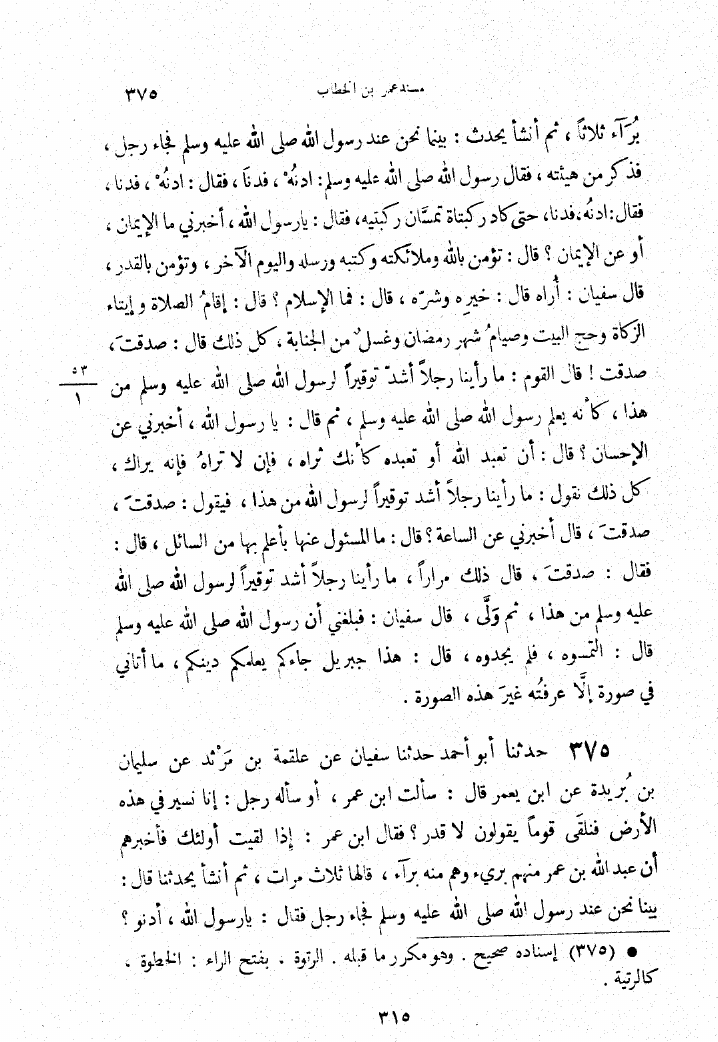 مسند عمر بن الخطاب ٣٧٥
بُرَآء ثلاثاً ، ثم أنشأ يحدث : بينما نحن عند رسول الله صلى الله عليه وسلم فجاء رجل ،
فذكر من هيئته ، فقال رسول الله صلى الله عليه وسلم : ادنُهْ ، فدنَا ، فقال : ادنُهْ ، فدنا ،
فقال : ادنُه ، فدنا ، حتى كاد ركبتاه تمسَّان ركبتيه ، فقال : يا رسول الله ، أخبرني ما الإيمان ،
أو عن الإيمان ؟ قال : تؤمن بالله وملائكته وكتبه ورسله واليوم الآخر ، وتؤمن بالقدر ،
قال سفيان : أُراه قال : خيرِه وشرّه ، قال : فما الإسلام ؟ قال : إقامُ الصلاة وإيتاء
الزكاة وحج البيت وصيامُ شهر رمضان وغسلٌ من الجنابة ، كل ذلك قال : صدقتَ ،
صدقت ! قال القوم : ما رأينا رجلاً أشدّ توقيراً لرسول الله صلى الله عليه وسلم من
٥٣
١
هذا ، كأنه يعلم رسول الله صلى الله عليه وسلم ، ثم قال : يا رسول الله ، أخبرني عن
الإحسان ؟ قال : أن تعبد الله أو تعبده كأنك تراه ، فإن لا تراهُ فإنه يراك ،
كل ذلك نقول : ما رأينا رجلاً أشد توقيراً لرسول الله من هذا ، فيقول : صدقتَ ،
صدقتَ ، قال أخبرني عن الساعة ؟ قال : ما المسئول عنها بأعلم بها من السائل ، قال :
فقال : صدقتَ ، قال ذلك مراراً ، ما رأينا رجلاً أشد توقيراً لرسول الله صلى الله
عليه وسلم من هذا ، ثم وَلَّى ، قال سفيان : فبلغني أن رسول الله صلى الله عليه وسلم
قال : التمسوه ، فلم يجدوه ، قال : هذا جبريل جاءكم يعلمكم دينكم ، ما أتاني
في صورة إلَّا عرفتُه غيرَ هذه الصورة .
٣٧٥ حدثنا أبو أحمد حدثنا سفيان عن علقمة بن مَرْثد عن سليمان
بن بُريدة عن ابن يعمر قال : سألت ابن عمر ، أو سأله رجل : إنا نسير في هذه
الأرض فنلقَى قوماً يقولون لا قدر ؟ فقال ابن عمر : إِذا لقيت أولئك فأخبرهم
أن عبد الله بن عمر منهم بريء وهم منه برآء ، قالها ثلاث مرات ، ثم أنشأ يحدثنا قال :
بينا نحن عند رسول الله صلى الله عليه وسلم فجاء رجل فقال : يا رسول الله ، أدنو ؟
● (٣٧٥) إسناده صحيح . وهو مكرر ما قبله . الرتوة ، بفتح الراء : الخطوة ،
كالرتية .
٣١٥